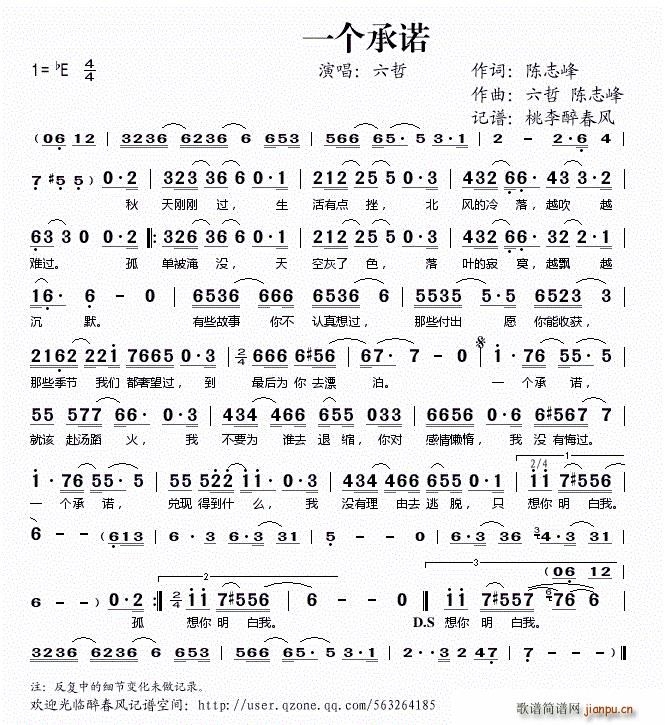 一个承诺
1=♭E 4/4 演唱：六哲 作词：陈志峰
作曲：六哲 陈志峰
记谱：桃李醉春风
(06 12 | 3236 6236 6 653 | 566 65·5 3·1 | 2 - 2·6 4 |
7 #5 5) 0·2 | 323 366 5 0·1 | 212 25 5 0·3 | 432 66·4·3 3·2 |
秋 天刚刚 过， 生 活有点 挫， 北 风的冷 落，越吹 越
63 3 0 0·2 ‖: 323 366 5 0·1 | 212 25 5 0·3 | 432 66·0 32·1 |
难过。 孤 单被淹 没， 天 空灰了 色， 落 叶的寂 寞，越飘 越
16· 6 - 0 | 6536 666 6536 6 | 5535 5·5 6523 3 |
沉 默。 有些故事 你不 认真想过， 那些付出 愿 你能收获，
2162 221 7665 0·3 | 2/4 666 6·#56 | 67· 7 - 0 𝄋 | 1·76 55·5 |
那些季节 我们 都奢望过， 到 最后为 你 去漂 泊。 一个 承 诺，
55 577 66· 0·3 | 434 466 655 033 | 6656 0·6 6#567 7 |
就该 赴汤蹈 火， 我 不要为 谁去 退 缩，你对 感情懒惰， 我 没 有悔过。
1·76 55·5 | 55 522 11· 0·3 | 434 466 655 0·1 | 2/4 11 7#556 |
一个 承 诺， 兑现 得到什 么， 我 没有理 由去 逃 脱， 只 想你 明 白我。
1
6 - - (613 | 6·3 63 6·3 31 | 5 - - 0 | 6·3 36 3·4 31 |
2 3 (06 12
6 - -) 0·2 :‖ 2/4 11 7#556 | 6 - - 0 D.S 11 7#557 76 6 |
孤 想你 明 白我。 想你 明 白我。
3236 6236 6 653 | 566 65·5 3·1 | 2 - 2·6 12 | 6 - - -) ‖
注：反复中的细节变化未做记录。
欢迎光临醉春风记谱空间：http://user.qzone.qq.com/563264185
歌谱简谱网
jianpu.cn